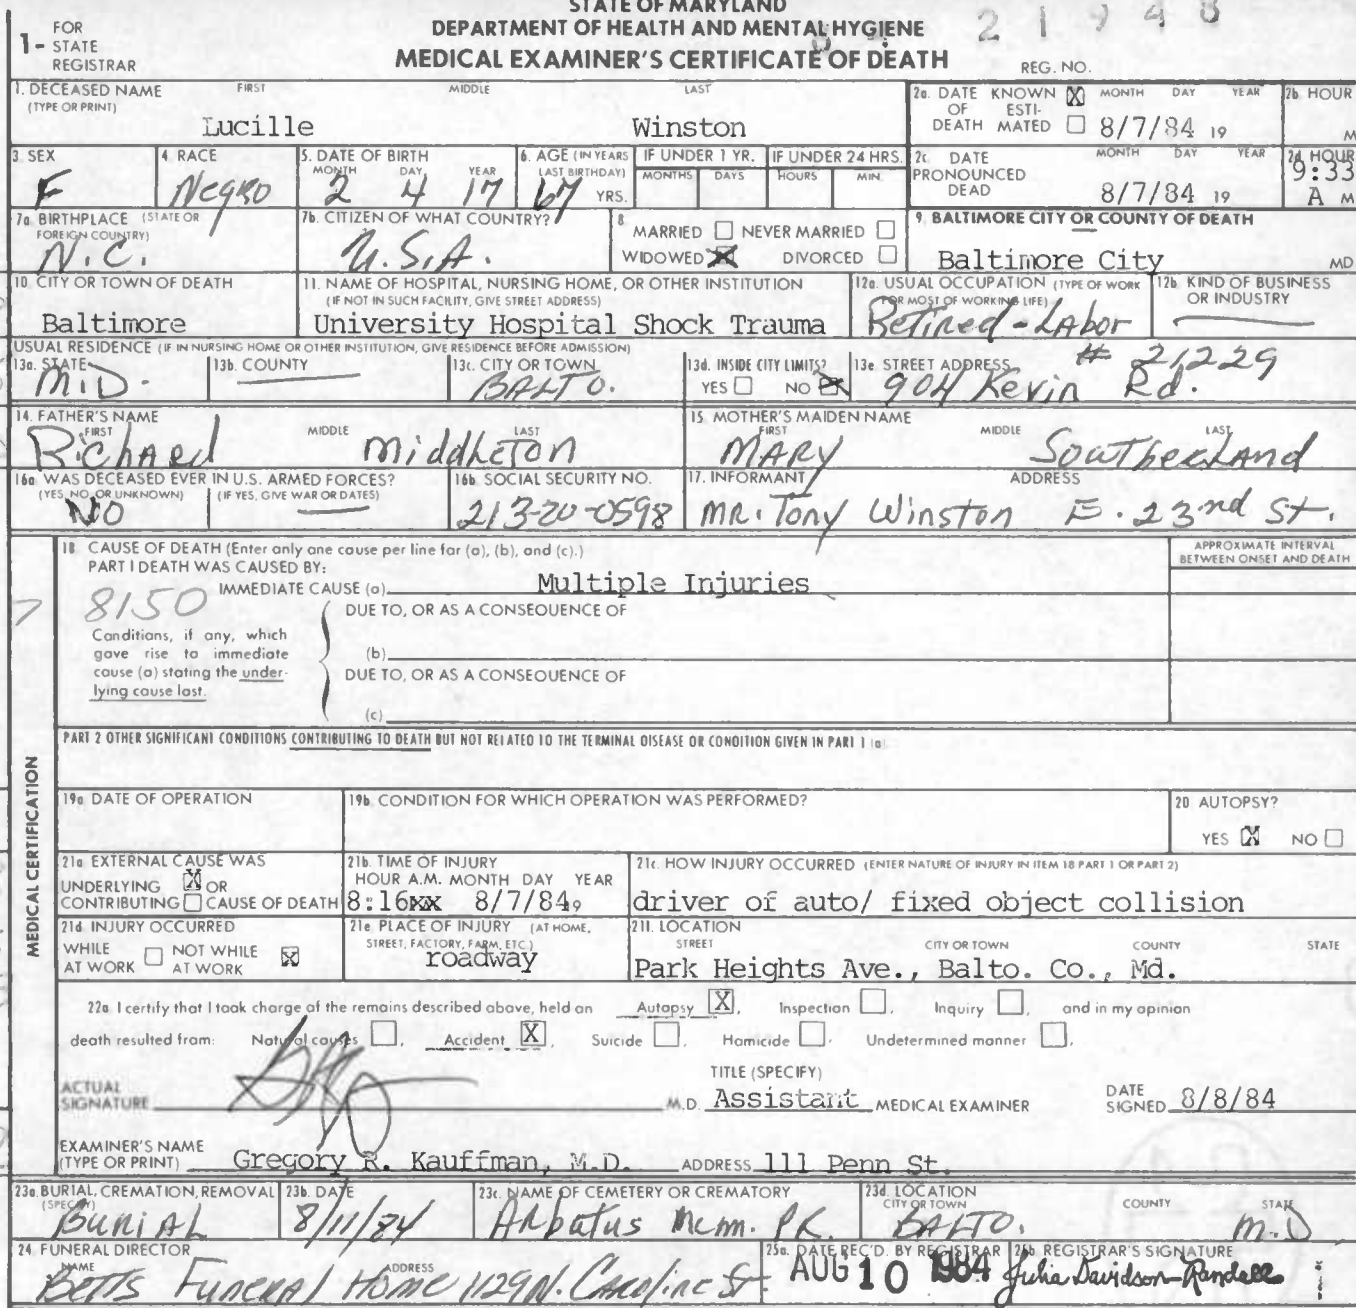 STATE OF MARYLAND
DEPARTMENT OF HEALTH AND MENTAL HYGIENE
MEDICAL EXAMINER'S CERTIFICATE OF DEATH
1- FOR STATE REGISTRAR
21948
REG. NO.
1. DECEASED NAME (TYPE OR PRINT) FIRST MIDDLE LAST
Lucille Winston
2a. DATE OF DEATH KNOWN X ESTIMATED MONTH DAY YEAR
8/7/84 19
2b. HOUR M
3. SEX F
4. RACE Negro
5. DATE OF BIRTH MONTH DAY YEAR
2 4 17
6. AGE (IN YEARS LAST BIRTHDAY) 67 YRS.
IF UNDER 1 YR. MONTHS DAYS
IF UNDER 24 HRS. HOURS MIN.
2c. DATE PRONOUNCED DEAD MONTH DAY YEAR
8/7/84 19
2d. HOUR 9:33 A M
7a. BIRTHPLACE (STATE OR FOREIGN COUNTRY)
N.C.
7b. CITIZEN OF WHAT COUNTRY?
U.S.A.
8 MARRIED NEVER MARRIED
WIDOWED X DIVORCED
9. BALTIMORE CITY OR COUNTY OF DEATH
Baltimore City MD
10. CITY OR TOWN OF DEATH
Baltimore
11. NAME OF HOSPITAL, NURSING HOME, OR OTHER INSTITUTION
(IF NOT IN SUCH FACILITY, GIVE STREET ADDRESS)
University Hospital Shock Trauma
12a. USUAL OCCUPATION (TYPE OF WORK FOR MOST OF WORKING LIFE)
Retired-Labor
12b. KIND OF BUSINESS OR INDUSTRY
USUAL RESIDENCE (IF IN NURSING HOME OR OTHER INSTITUTION, GIVE RESIDENCE BEFORE ADMISSION)
13a. STATE M.D.
13b. COUNTY
13c. CITY OR TOWN BALTO.
13d. INSIDE CITY LIMITS? YES NO X
13e. STREET ADDRESS # 21229
904 Kevin Rd.
14. FATHER'S NAME FIRST MIDDLE LAST
Richard Middleton
15. MOTHER'S MAIDEN NAME FIRST MIDDLE LAST
MARY Southerland
16a. WAS DECEASED EVER IN U.S. ARMED FORCES?
(YES, NO, OR UNKNOWN) (IF YES, GIVE WAR OR DATES)
NO
16b. SOCIAL SECURITY NO.
213-20-0598
17. INFORMANT ADDRESS
MR. Tony Winston E. 23nd St.
MEDICAL CERTIFICATION
18 CAUSE OF DEATH (Enter only one cause per line for (a), (b), and (c).)
PART I DEATH WAS CAUSED BY:
APPROXIMATE INTERVAL BETWEEN ONSET AND DEATH
IMMEDIATE CAUSE (a) Multiple Injuries
8150
DUE TO, OR AS A CONSEQUENCE OF
Conditions, if any, which gave rise to immediate cause (a) stating the underlying cause last.
(b)
DUE TO, OR AS A CONSEQUENCE OF
(c)
PART 2 OTHER SIGNIFICANT CONDITIONS CONTRIBUTING TO DEATH BUT NOT RELATED TO THE TERMINAL DISEASE OR CONDITION GIVEN IN PART 1 (a)
19a. DATE OF OPERATION
19b. CONDITION FOR WHICH OPERATION WAS PERFORMED?
20 AUTOPSY?
YES X NO
21a EXTERNAL CAUSE WAS
UNDERLYING X OR
CONTRIBUTING CAUSE OF DEATH
21b. TIME OF INJURY
HOUR A.M. MONTH DAY YEAR
8:16xx 8/7/849
21c. HOW INJURY OCCURRED (ENTER NATURE OF INJURY IN ITEM 18 PART 1 OR PART 2)
driver of auto/ fixed object collision
21d INJURY OCCURRED
WHILE AT WORK NOT WHILE AT WORK X
21e PLACE OF INJURY (AT HOME, STREET, FACTORY, FARM, ETC.)
roadway
21f. LOCATION
STREET CITY OR TOWN COUNTY STATE
Park Heights Ave., Balto. Co., Md.
22a I certify that I took charge of the remains described above, held an Autopsy X, Inspection , Inquiry , and in my opinion
death resulted from: Natural causes , Accident X, Suicide , Homicide , Undetermined manner .
ACTUAL SIGNATURE M.D.
TITLE (SPECIFY)
Assistant MEDICAL EXAMINER
DATE SIGNED 8/8/84
EXAMINER'S NAME (TYPE OR PRINT) Gregory R. Kauffman, M.D. ADDRESS 111 Penn St.
23a. BURIAL, CREMATION, REMOVAL (SPECIFY)
Burial
23b. DATE
8/11/84
23c. NAME OF CEMETERY OR CREMATORY
Arbutus Mem. PK.
23d. LOCATION CITY OR TOWN COUNTY STATE
BALTO. M.D
24 FUNERAL DIRECTOR
NAME ADDRESS
Betts Funeral Home 1129 N. Caroline St.
25a. DATE REC'D. BY REGISTRAR
AUG 10 1984
25b. REGISTRAR'S SIGNATURE
Julia Davidson-Randall